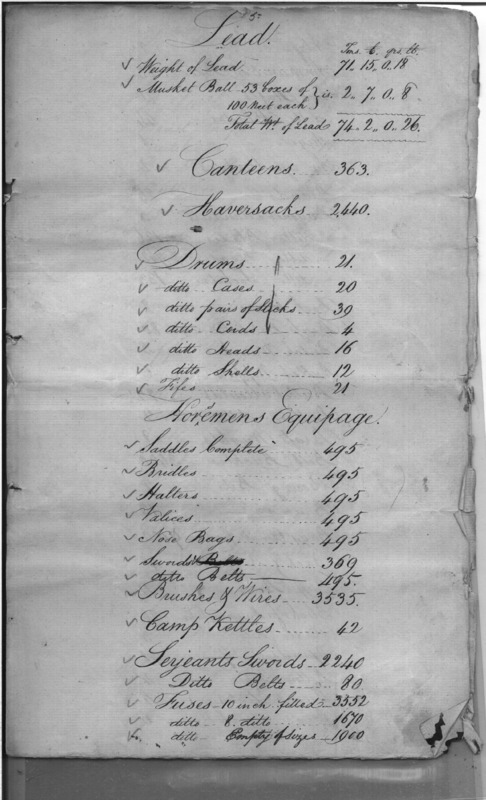 5
Lead.
Tons. C. qrs. lb.
Weight of Lead 71. 15. 0. 18
Musket Ball 53 boxes of
100 Neet each } is. 2. 7. 0. 8
Total Wt. of Lead 74. 2. 0. 26.
Canteens. 363.
Haversacks 2,440.
Drums 21.
ditto Cases 20
ditto pairs of Sticks 39
ditto Cords 4
ditto Heads 16
ditto Shells 12
Fifes 21
Horsemens Equipage.
Saddles Complete 495
Bridles 495
Halters 495
Valices 495
Nose Bags 495
Swords 369
ditto Belts 495.
Brushes & Wires 3535.
Camp Kettles 42
Serjeants Swords 2240
Ditto Belts 80
Fuses 10 inch filled 3552
ditto 8. ditto 1670
ditto Empty of Sizes 1900